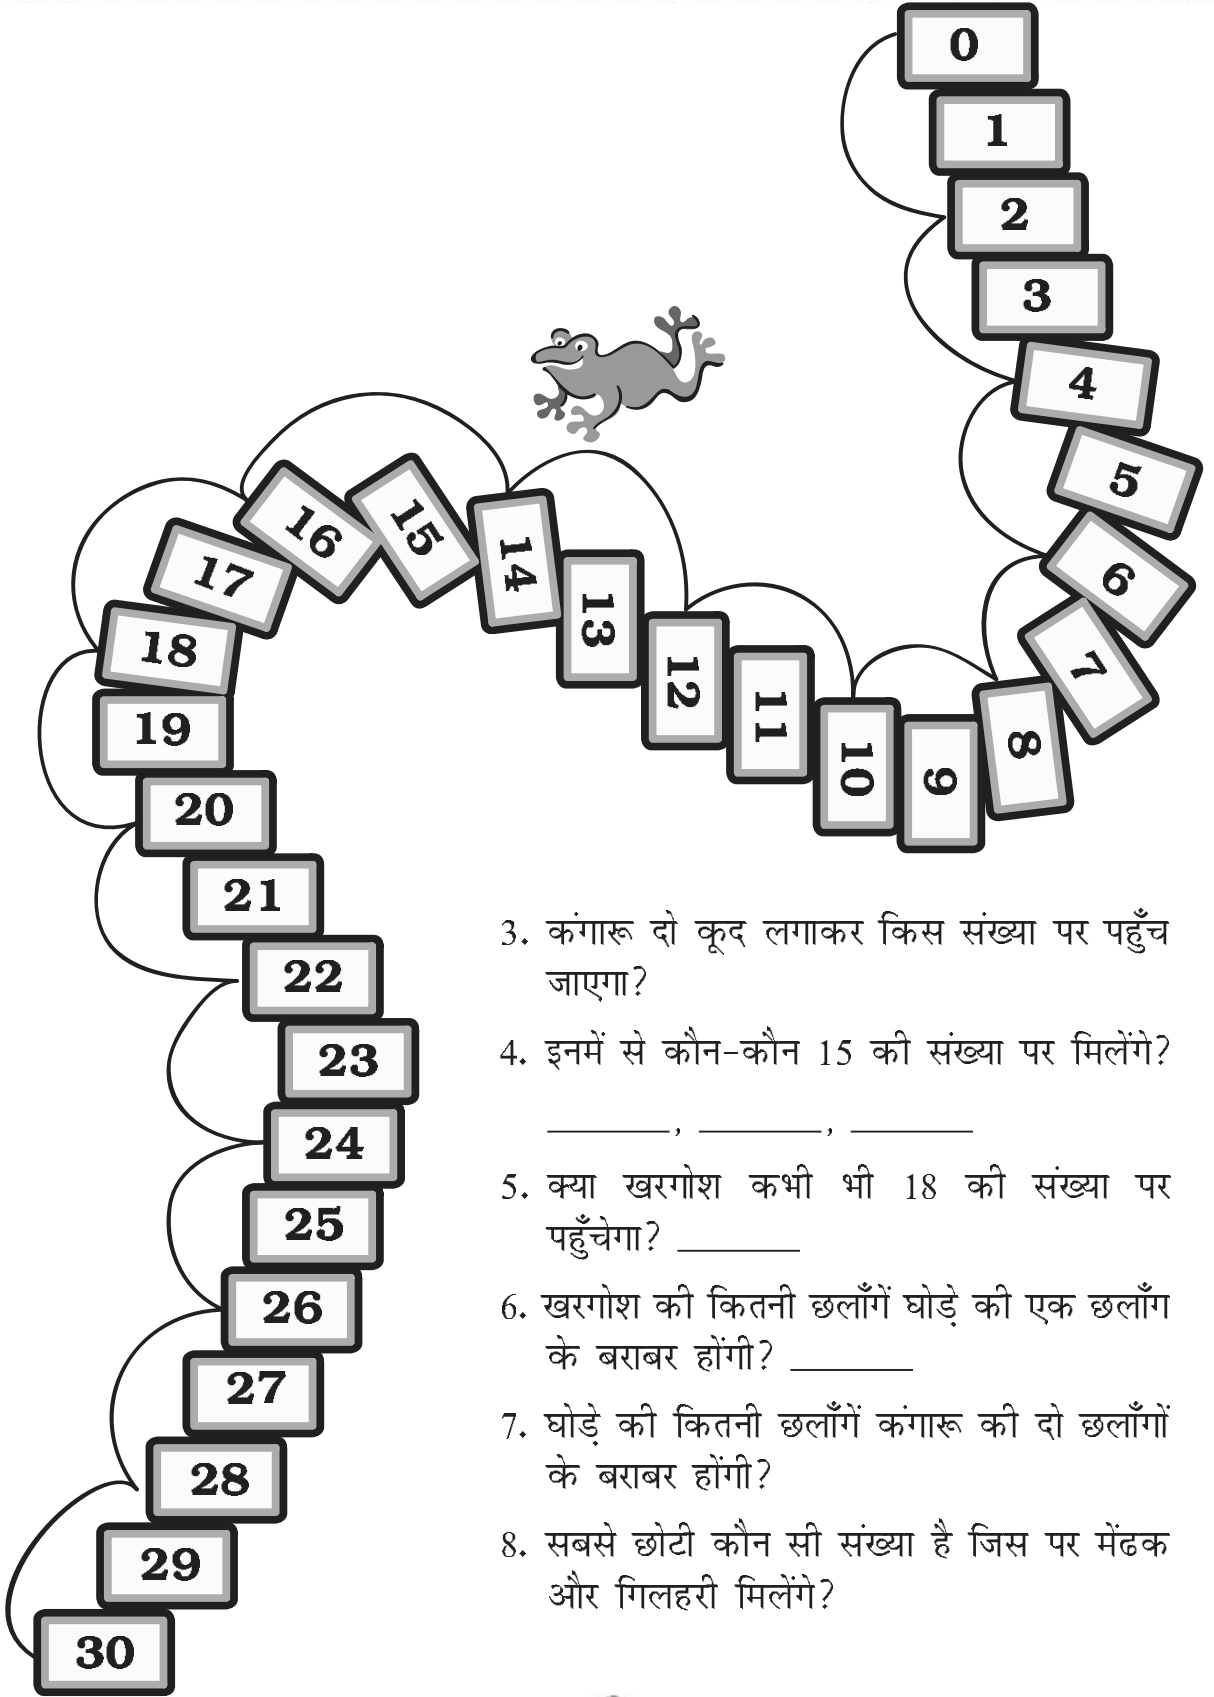 0
1
2
3
4
5
6
7
8
9
10
11
12
13
14
15
16
17
18
19
20
21
22
23
24
25
26
27
28
29
30
3. कंगारू दो कूद लगाकर किस संख्या पर पहुँच
जाएगा?
4. इनमें से कौन-कौन 15 की संख्या पर मिलेंगे?
________, ________, ________
5. क्या खरगोश कभी भी 18 की संख्या पर
पहुँचेगा? ________
6. खरगोश की कितनी छलाँगें घोड़े की एक छलाँग
के बराबर होंगी? ________
7. घोड़े की कितनी छलाँगें कंगारू की दो छलाँगों
के बराबर होंगी?
8. सबसे छोटी कौन सी संख्या है जिस पर मेंढक
और गिलहरी मिलेंगे?